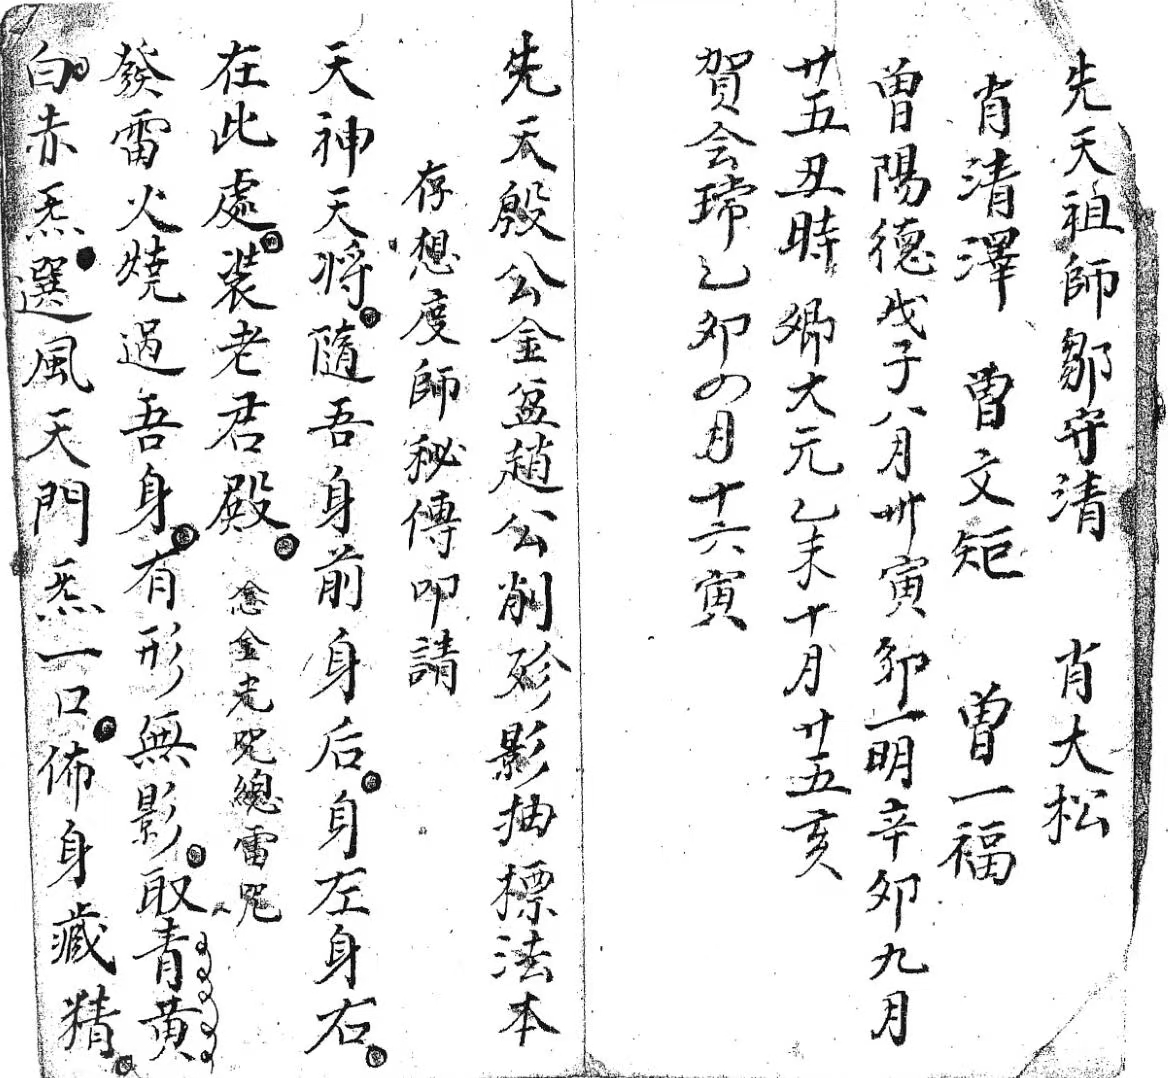 先天祖師鄒守清 肖大松
肖清澤 曾文矩 曾一福
曾陽德戊子八月卅寅卯一明辛卯九月
廿五丑時 卿大元乙未十月廿五亥
賀会瑞乙卯の月十六寅
先天殷公金盆趙公削殄影抽標法本
存想度師秘傳叩請
天神天将隨吾身前身后身左身右
在此處裝老君殿 念金光咒總雷咒
發雷火燒過吾身有形無影取青黃
白赤炁選風天門炁一口佈身藏精